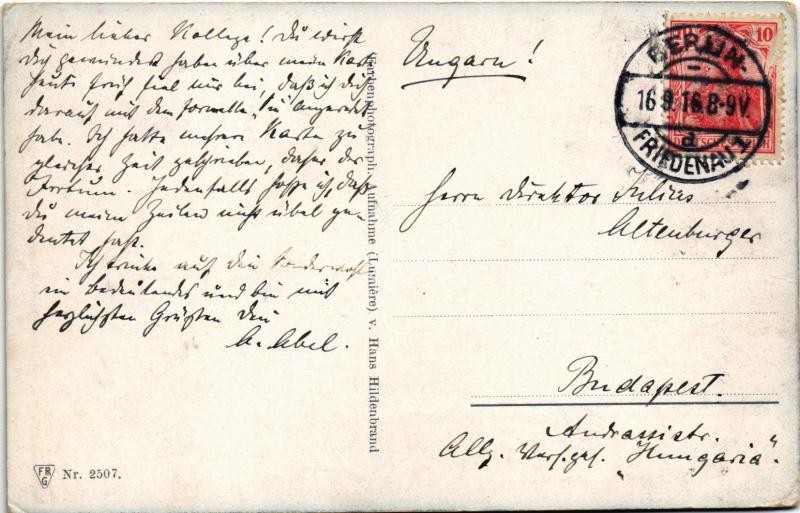 Mein lieber Kollege! Du wirst
Dich gewundert haben über meine Karte
heute früh fiel mir bei, daß ich Dich
darauf mit dem formellen „Sie" angeredet
habe. Ich hatte mehrere Karten zu
gleicher Zeit geschrieben, daher der
Irrtum. Jedenfalls hoffe ich, daß
Du meine Zeilen nicht übel ge-
deutet hast.
Ich trinke auf Dein
in Bedeutendes und bin mit
herzlichsten Grüßen Dein
A. Abel.
FR
G
Nr. 2507.
Farbenphotograph. Aufnahme (Lumière) v. Hans Hildenbrand
Ungarn!
10
BERLIN-
16.9.16.8-9V
d
FRIEDENAU 1
Herrn Direktor Julius
Altenburger
Budapest.
Andrassistr.
Allg. Vers. ges. „Hungaria".